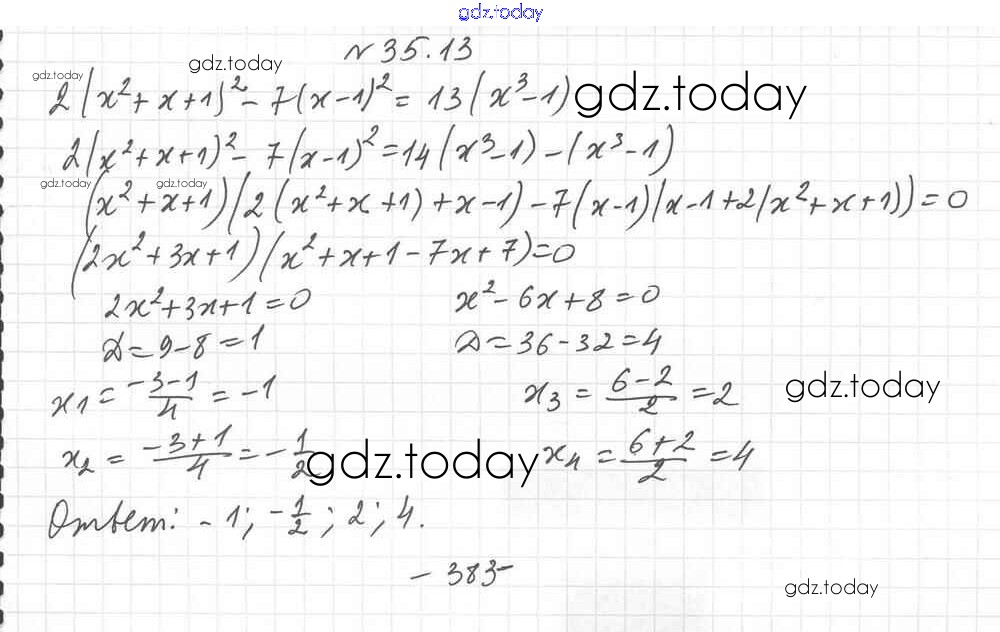 gdz.today
№ 35.13
gdz.today gdz.today
2(x²+x+1)² - 7(x-1)² = 13(x³-1) gdz.today
2(x²+x+1)² - 7(x-1)² = 14(x³-1) - (x³-1)
gdz.today gdz.today
(x²+x+1)(2(x²+x+1)+x-1) - 7(x-1)(x-1+2(x²+x+1)) = 0
(2x²+3x+1)(x²+x+1-7x+7)=0
2x²+3x+1=0 x²-6x+8=0
D=9-8=1 D=36-32=4
x₁ = (-3-1)/4 = -1 x₃ = (6-2)/2 = 2 gdz.today
x₂ = (-3+1)/4 = -1/2 gdz.today x₄ = (6+2)/2 = 4
Ответ: -1; -1/2; 2; 4.
- 383 -
gdz.today